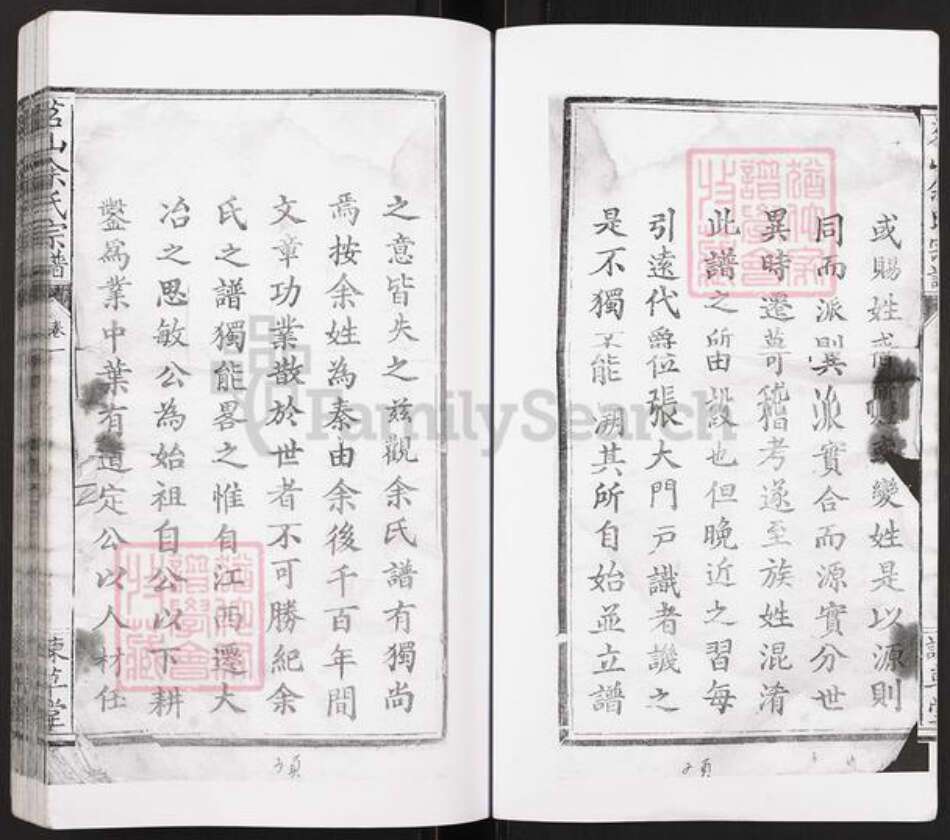 或賜姓或 變姓是以源則
同而派則異派實合而源實分世
異時遷莫可稽考遂至族姓混淆
此譜之所由設也但晚近之習每
引遠代爵位張大門戸識者譏之
是不獨不能溯其所自始並立譜
之意皆失之茲觀余氏譜有獨尚
焉按余姓為秦由余後千百年間
文章功業散於世者不可勝紀余
氏之譜獨能畧之惟自江西遷大
冶之思敏公為始祖自公以下耕
鑿為業中葉有道定公以人材任
茗山余氏宗譜
卷一
子頁
子頁
FamilySearch